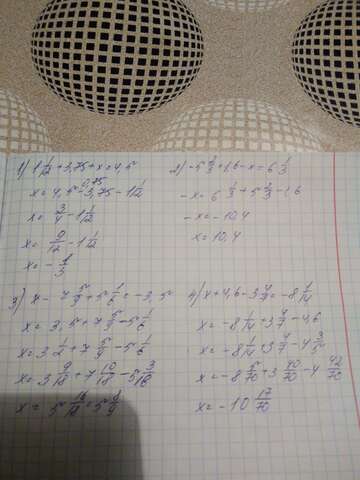 1) 1 1/12 + 3,75 + x = 4,5
x = 4,5 - 3,75 - 1 1/12
0,75
x = 3/4 - 1 1/12
x = 9/12 - 1 1/12
x = - 1/3
2) -5 2/3 + 1,6 - x = 6 1/3
-x = 6 1/3 + 5 2/3 - 1,6
-x = -10,4
x = 10,4
3) x - 7 5/9 + 5 1/6 = -3,5
x = 3,5 + 7 5/9 - 5 1/6
x = 3 1/2 + 7 5/9 - 5 1/6
x = 3 9/18 + 7 10/18 - 5 3/18
x = 5 16/18 = 5 8/9
4) x + 4,6 - 3 4/7 = -8 1/14
x = -8 1/14 + 3 4/7 - 4,6
x = -8 1/14 + 3 4/7 - 4 3/5
x = -8 5/70 + 3 40/70 - 4 42/70
x = -10 17/70